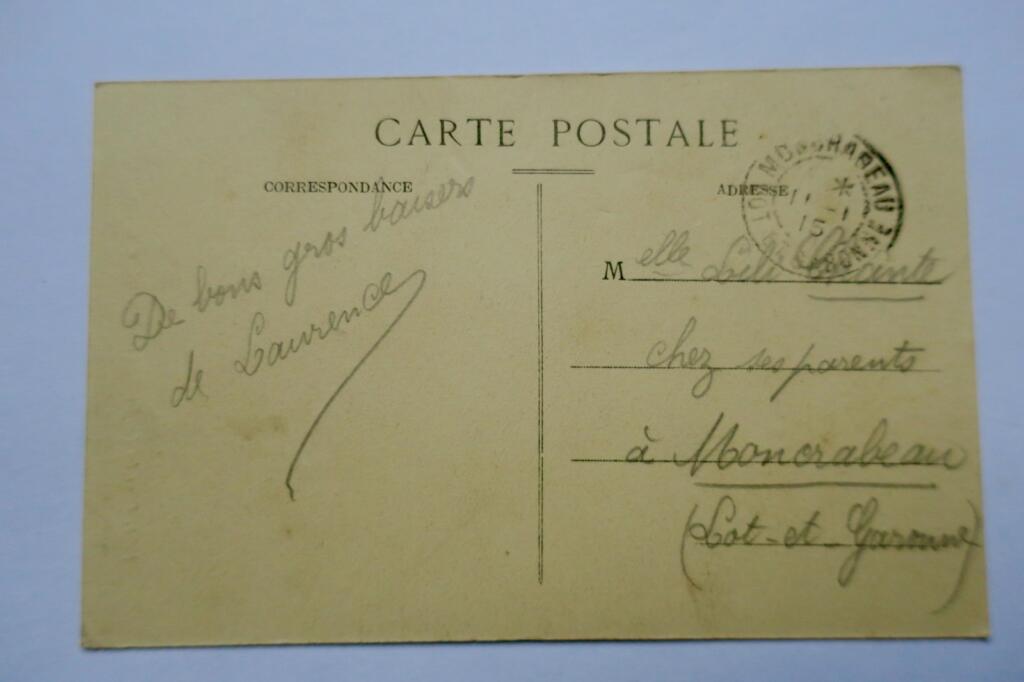 CARTE POSTALE
CORRESPONDANCE
De bons gros baisers
de Laurence
ADRESSE
MONCRABEAU
LOT
GARONNE
15
Melle Lili
chez ses parents
à Moncrabeau
(Lot-et-Garonne)